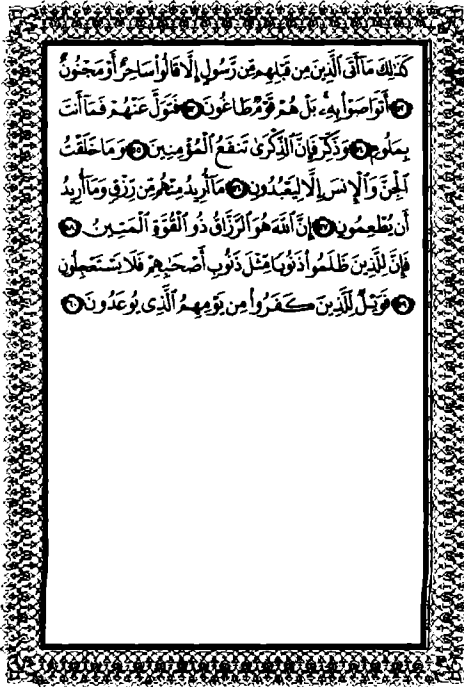 كَذَٰلِكَ مَآ أَتَى ٱلَّذِينَ مِن قَبْلِهِم مِّن رَّسُولٍ إِلَّا قَالُوا۟ سَاحِرٌ أَوْ مَجْنُونٌ
٥٢ أَتَوَاصَوْا۟ بِهِۦ بَلْ هُمْ قَوْمٌ طَاغُونَ ٥٣ فَتَوَلَّ عَنْهُمْ فَمَآ أَنتَ
بِمَلُومٍ ٥٤ وَذَكِّرْ فَإِنَّ ٱلذِّكْرَىٰ تَنفَعُ ٱلْمُؤْمِنِينَ ٥٥ وَمَا خَلَقْتُ
ٱلْجِنَّ وَٱلْإِنسَ إِلَّا لِيَعْبُدُونِ ٥٦ مَآ أُرِيدُ مِنْهُم مِّن رِّزْقٍ وَمَآ أُرِيدُ
أَن يُطْعِمُونِ ٥٧ إِنَّ ٱللَّهَ هُوَ ٱلرَّزَّاقُ ذُو ٱلْقُوَّةِ ٱلْمَتِينُ ٥٨
فَإِنَّ لِلَّذِينَ ظَلَمُوا۟ ذَنُوبًا مِّثْلَ ذَنُوبِ أَصْحَٰبِهِمْ فَلَا يَسْتَعْجِلُونِ
٥٩ فَوَيْلٌ لِّلَّذِينَ كَفَرُوا۟ مِن يَوْمِهِمُ ٱلَّذِى يُوعَدُونَ ٦٠